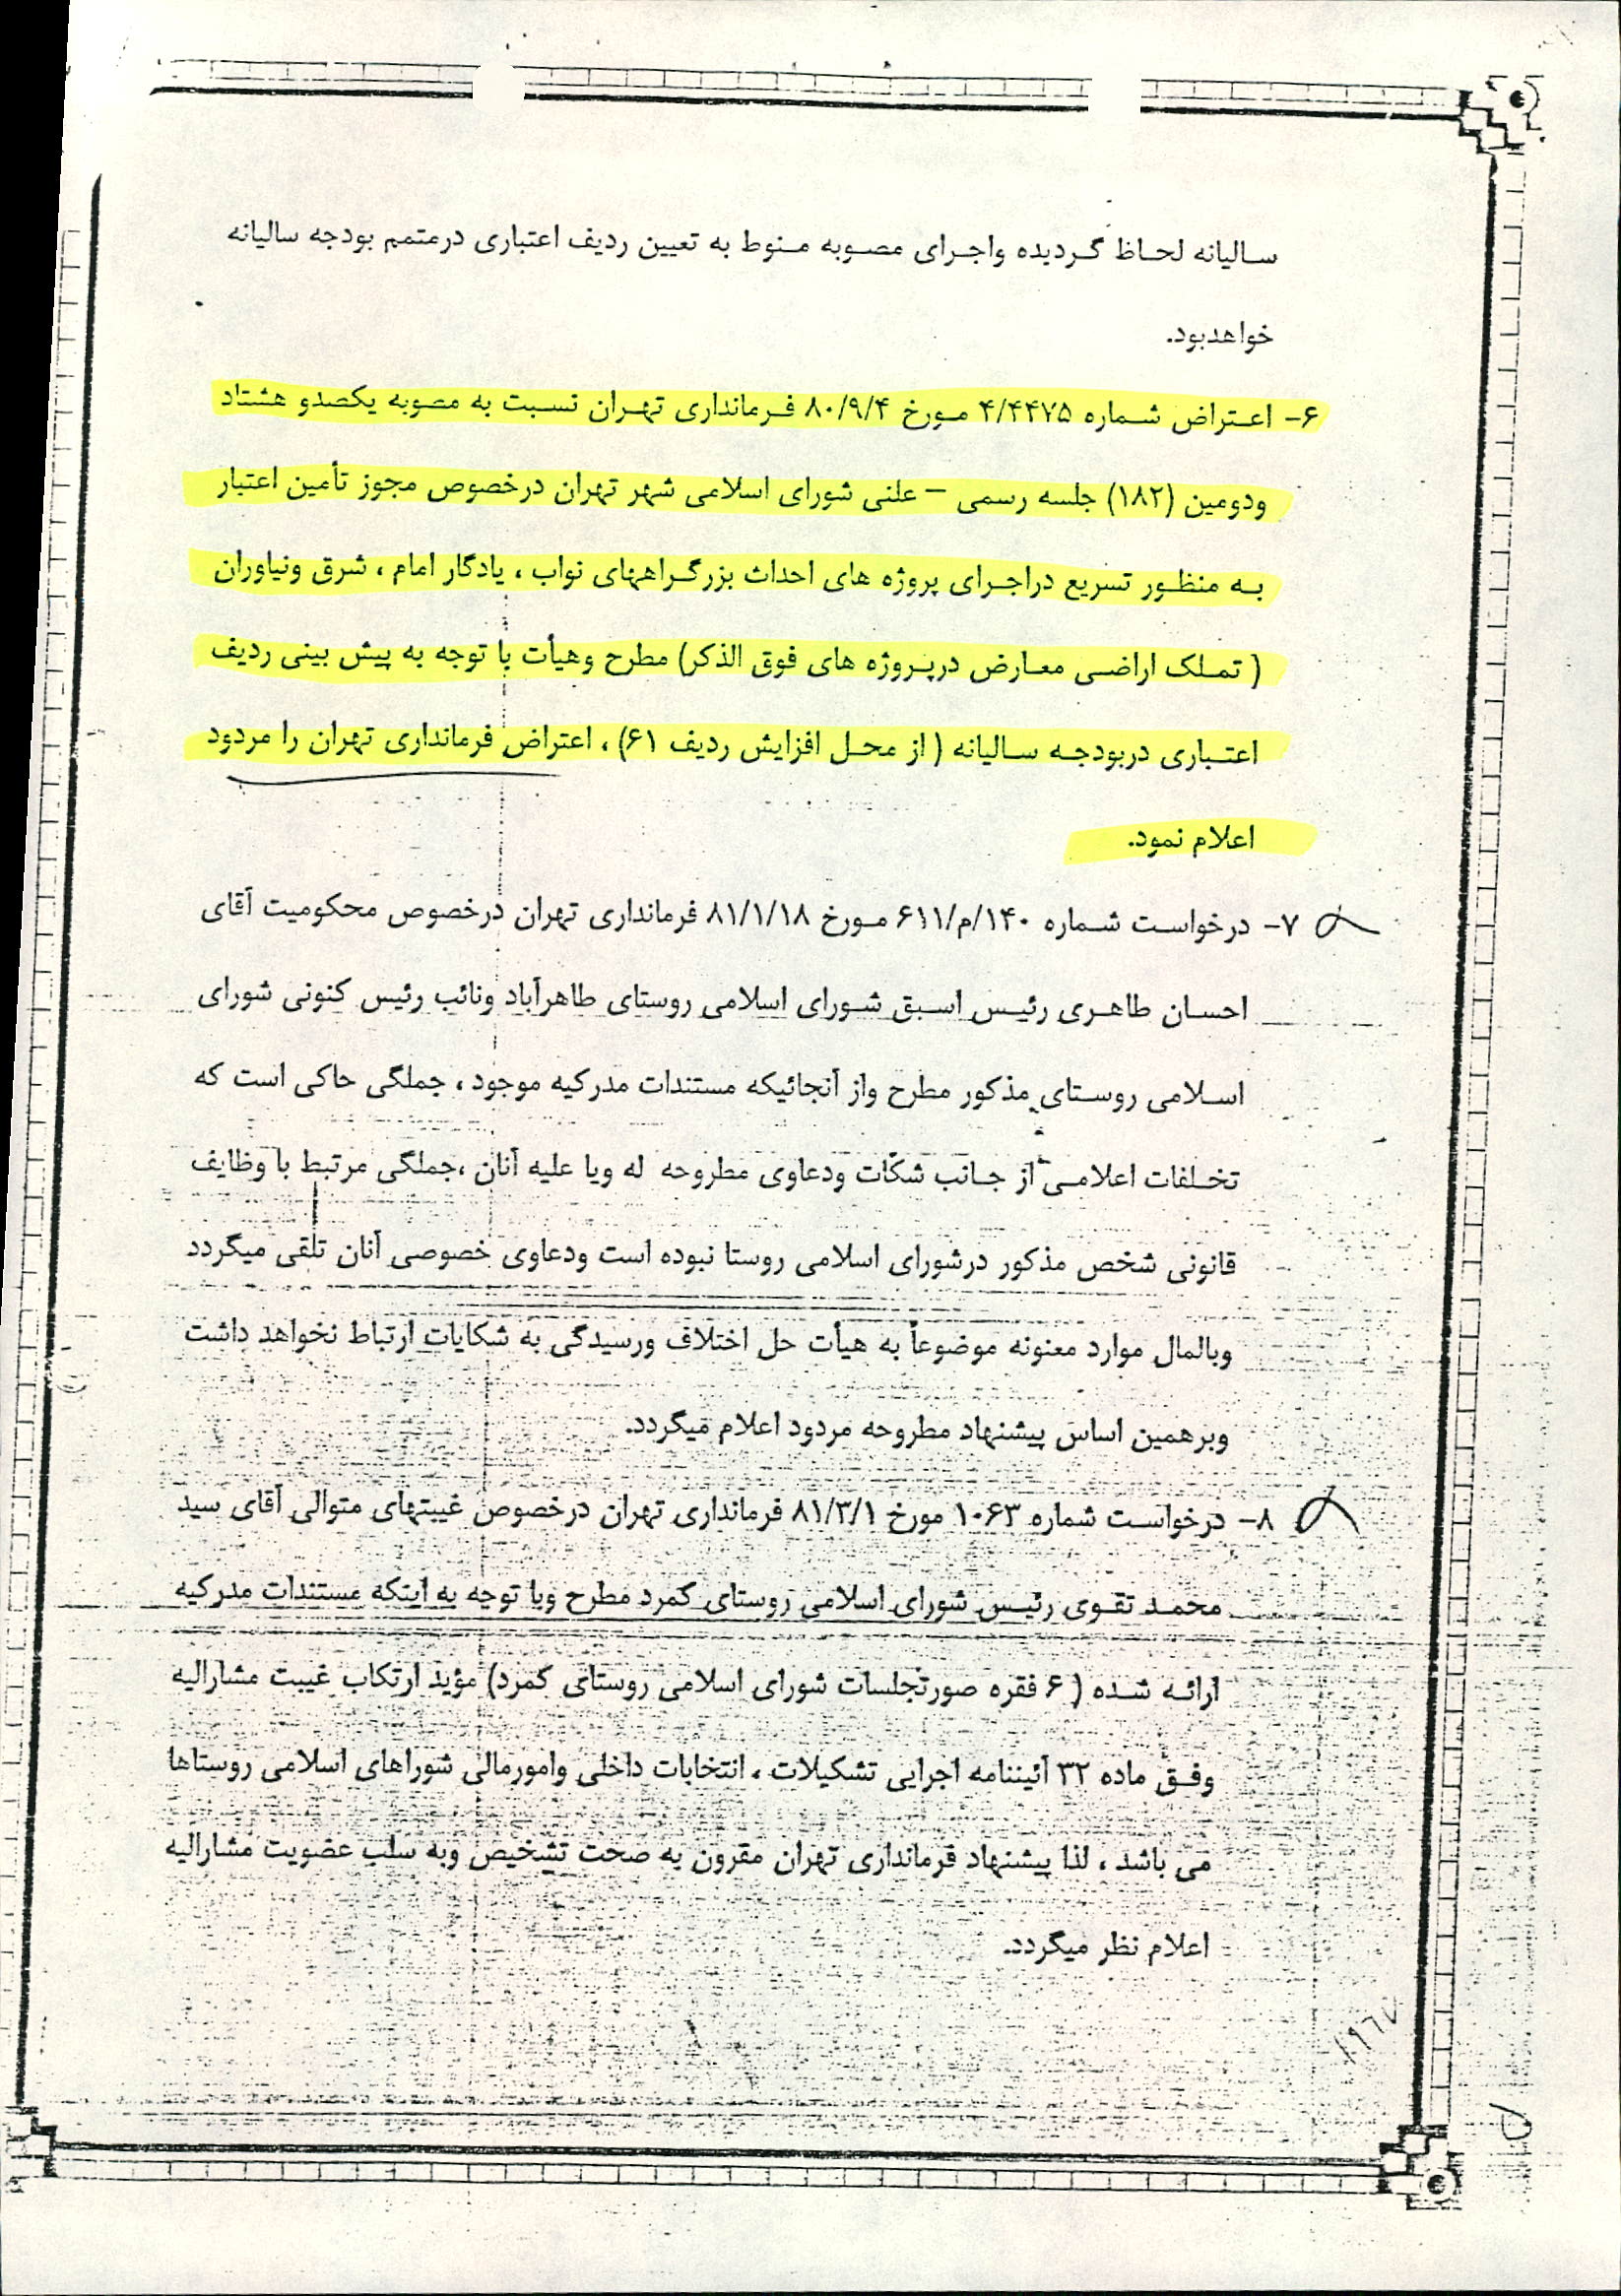 سالیانه لحاظ گردیده واجرای مصوبه منوط به تعیین ردیف اعتباری درمتمم بودجه سالیانه
خواهدبود.
۶- اعتراض شماره ۴/۴۴۷۵ مورخ ۸۰/۹/۴ فرمانداری تهران نسبت به مصوبه یکصدو هشتاد
ودومین (۱۸۲) جلسه رسمی – علنی شورای اسلامی شهر تهران درخصوص مجوز تأمین اعتبار
به منظور تسریع دراجرای پروژه های احداث بزرگراههای نواب ، یادگار امام ، شرق ونیاوران
( تملک اراضی معارض درپروژه های فوق الذکر) مطرح وهیأت با توجه به پیش بینی ردیف
اعتباری دربودجه سالیانه ( از محل افزایش ردیف ۶۱) ، اعتراض فرمانداری تهران را مردود
اعلام نمود.
۷- درخواست شماره ۱۴۰/م/۶۱۱ مورخ ۸۱/۱/۱۸ فرمانداری تهران درخصوص محکومیت آقای
احسان طاهری رئیس اسبق شورای اسلامی روستای طاهرآباد ونائب رئیس کنونی شورای
اسلامی روستای مذکور مطرح واز آنجائیکه مستندات مدرکیه موجود ، جملگی حاکی است که
تخلفات اعلامی از جانب شکات ودعاوی مطروحه له ویا علیه آنان ،جملگی مرتبط با وظایف
قانونی شخص مذکور درشورای اسلامی روستا نبوده است ودعاوی خصوصی آنان تلقی میگردد
وبالمال موارد معنونه موضوعاً به هیأت حل اختلاف ورسیدگی به شکایات ارتباط نخواهد داشت
وبرهمین اساس پیشنهاد مطروحه مردود اعلام میگردد.
۸- درخواست شماره ۱۰۶۳ مورخ ۸۱/۳/۱ فرمانداری تهران درخصوص غیبتهای متوالی آقای سید
محمد تقوی رئیس شورای اسلامی روستای کمرد مطرح وبا توجه به اینکه مستندات مدرکیه
ارائه شده ( ۶ فقره صورتجلسات شورای اسلامی روستای کمرد) مؤید ارتکاب غیبت مشارالیه
وفق ماده ۳۲ آئیننامه اجرایی تشکیلات ، انتخابات داخلی وامورمالی شوراهای اسلامی روستاها
می باشد ، لذا پیشنهاد فرمانداری تهران مقرون به صحت تشخیص وبه سلب عضویت مشارالیه
اعلام نظر میگردد.